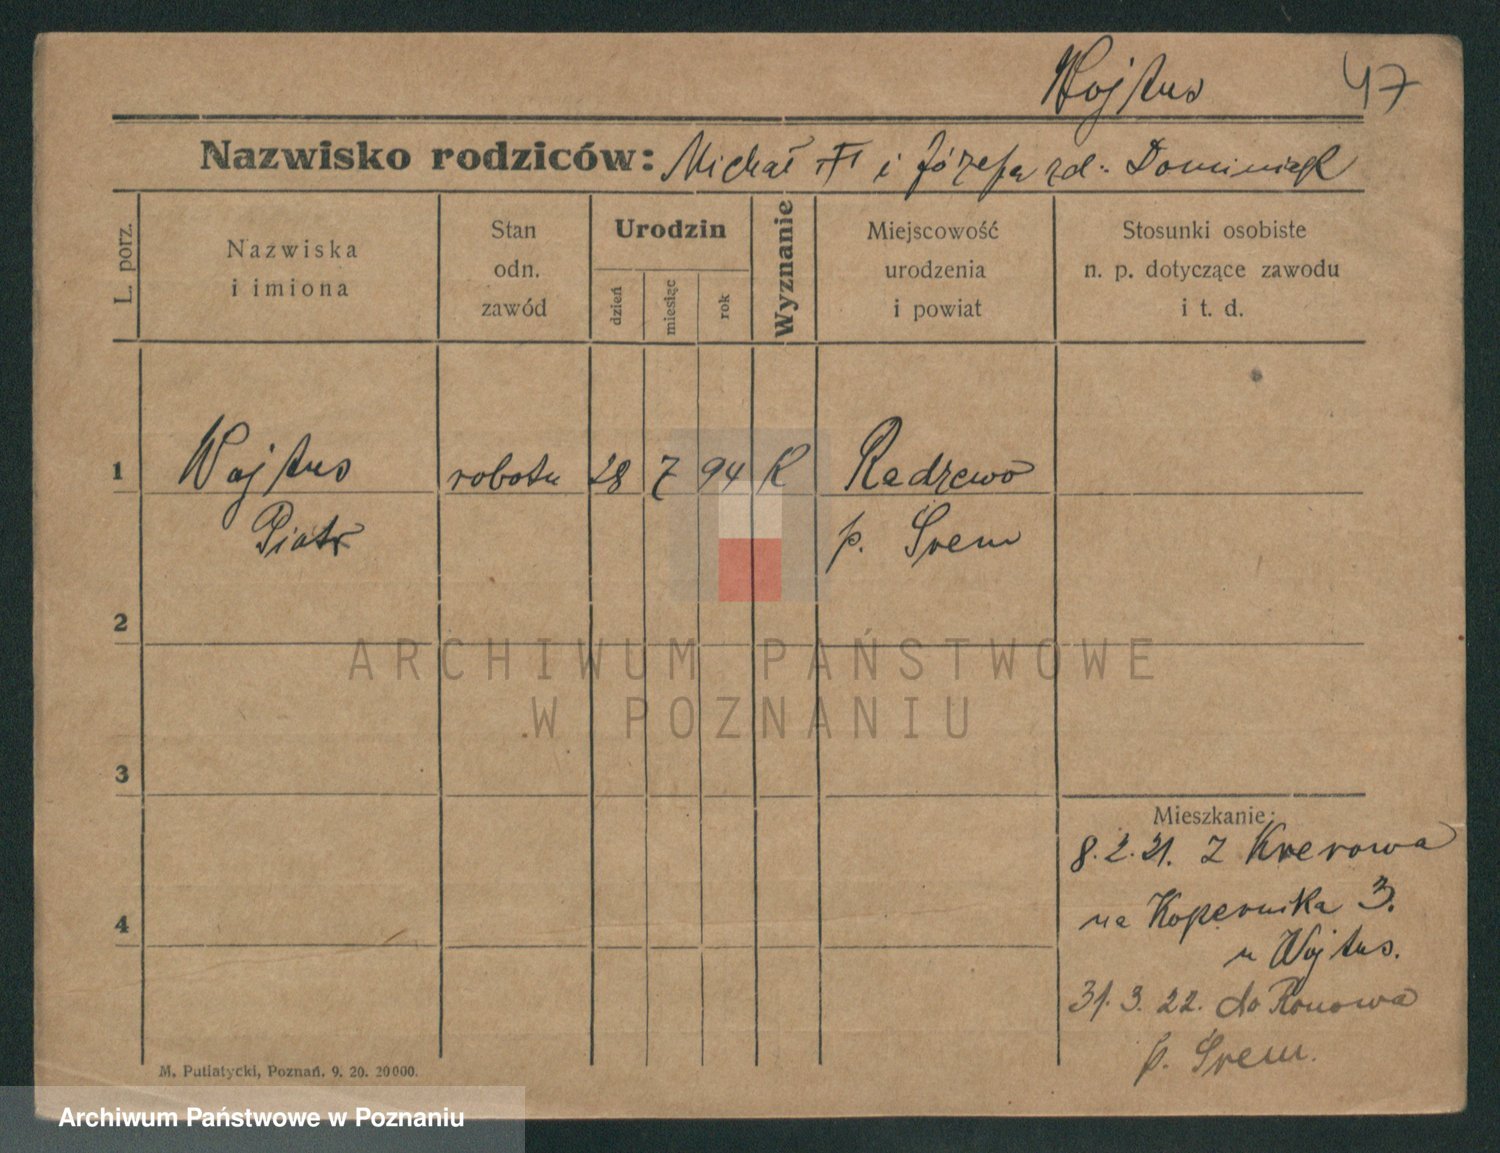 Wojtus 47
Nazwisko rodziców: Michał i Józefa zd. Dominiak
L. porz.
Nazwiska
i imiona
Stan
odn.
zawód
Urodzin
dzień
miesiąc
rok
Wyznanie
Miejscowość
urodzenia
i powiat
Stosunki osobiste
n. p. dotyczące zawodu
i t. d.
1 Wojtus robotn 28 7 94 K Radzewo
Piotr p. Śrem
2
3
4
Mieszkanie:
8.2.21. z Krerowa
na Kopernika 3.
u Wojtus.
31.3.22. do Ronowa
p. Śrem.
M. Putiatycki, Poznań. 9. 20. 20000.
ARCHIWUM PAŃSTWOWE
W POZNANIU
Archiwum Państwowe w Poznaniu